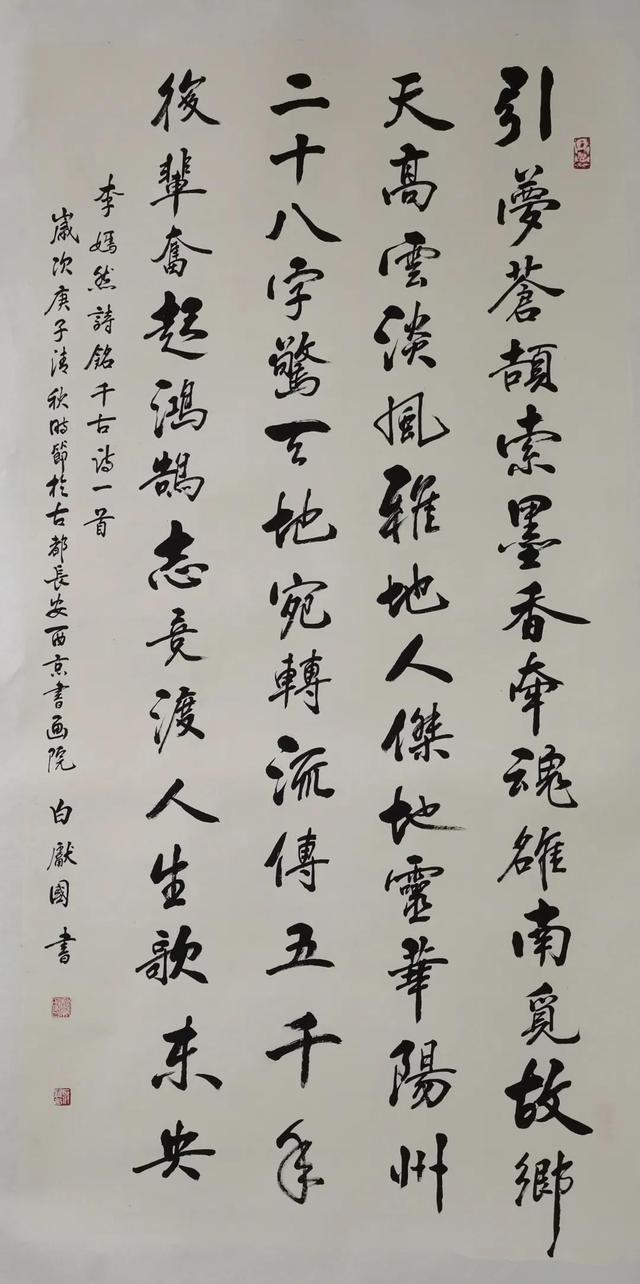 引夢蒼頡索墨香牽魂雒南覓故鄉
天高雲淡風雅地人傑地靈華陽州
二十八字驚天地宛轉流傳五千年
後輩奮起鴻鵠志竞渡人生歌未央
李嫣然詩銘千古詩一首
歲次庚子清秋時節於古都長安西京書画院 白獻國 書